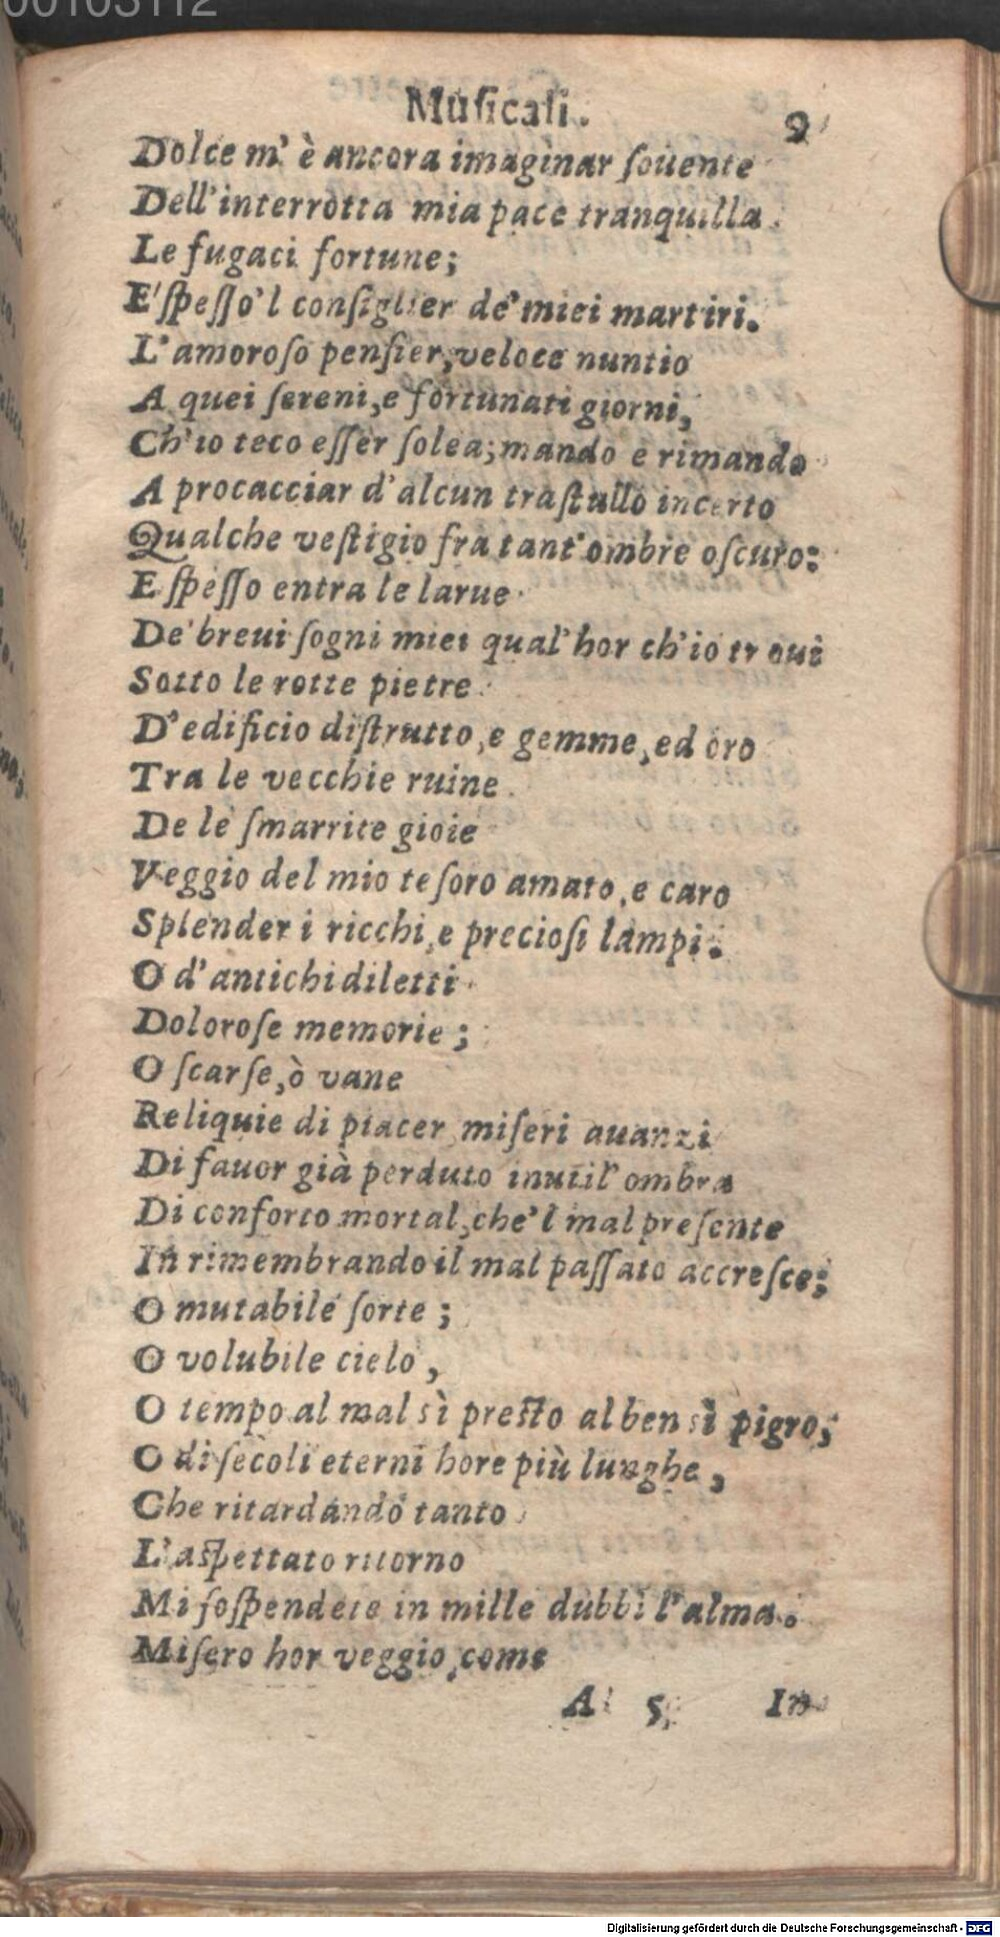 00103112
Muſicali. 9
Dolce m' è ancora imaginar ſouente
Dell'interrotta mia pace tranquilla
Le fugaci fortune;
E' ſpeſſo'l conſiglier de' miei martiri.
L'amoroſo penſier, veloce nuntio
A quei ſereni, e fortunati giorni,
Ch'io teco eſſer ſolea; mando e rimando
A procacciar d'alcun traſtullo incerto
Qualche veſtigio fra tant'ombre oſcuro:
E ſpeſſo entra le larue
De' breui ſogni miei qual'hor ch'io troui
Sotto le rotte pietre
D'edificio diſtrutto, e gemme, ed oro
Tra le vecchie ruine
De le ſmarrite gioie
Veggio del mio teſoro amato, e caro
Splender i ricchi, e precioſi lampi.
O d'antichi diletti
Doloroſe memorie;
O ſcarſe, ò vane
Reliquie di piacer miſeri auanzi
Di fauor già perduto inutil'ombra
Di conforto mortal, che'l mal preſente
In rimembrando il mal paſſato accreſce;
O mutabile ſorte;
O volubile cielo,
O tempo al mal sì preſto al ben sì pigro;
O di ſecoli eterni hore più lunghe,
Che ritardando tanto
L'aſpettato ritorno
Mi ſoſpendete in mille dubbi l'alma.
Miſero hor veggio, come
A 5 In
Digitalisierung gefördert durch die Deutsche Forschungsgemeinschaft - DFG